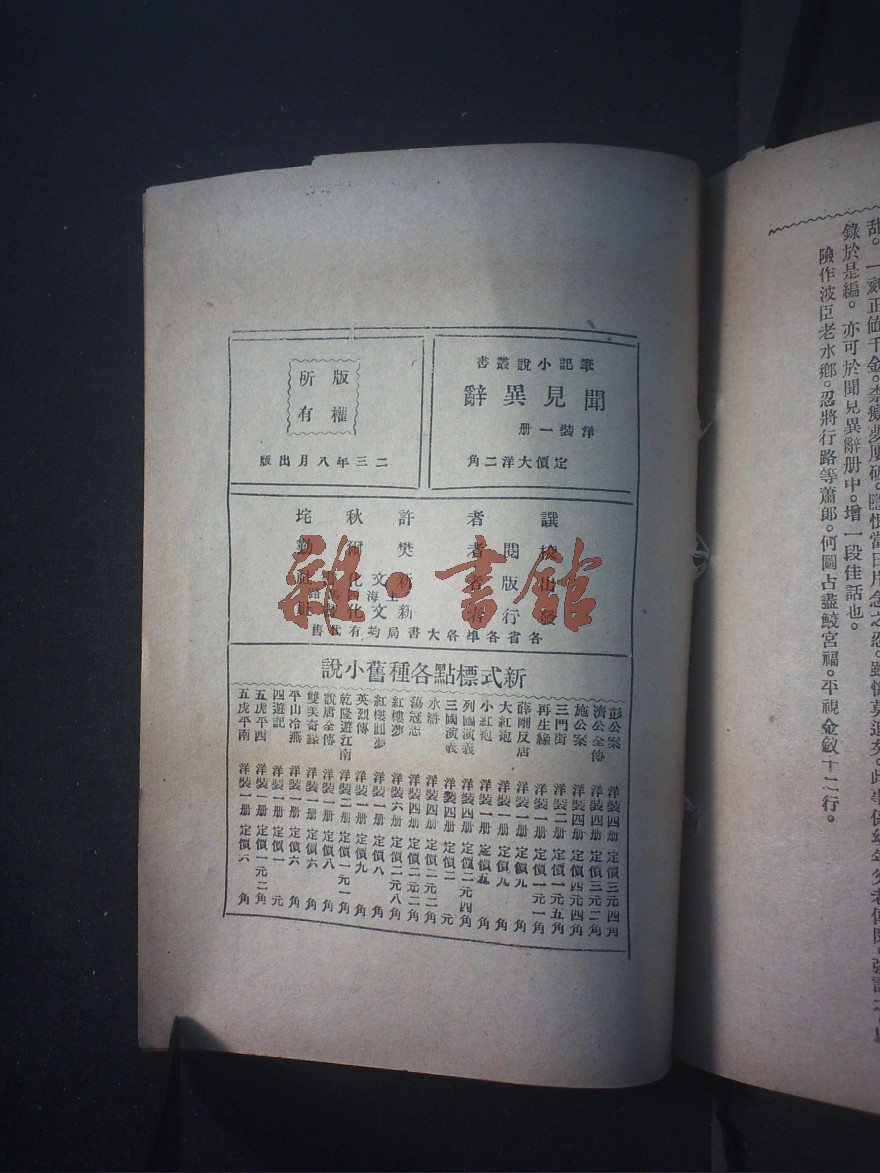 甜。一刻正値千金。柰癡夢屢破。隱恨當日片念之忍。雖懊莫追矣。此事係幼年父老傳聞。
錄於是編。亦可於聞見異辭册中。增一段佳話也。
險作波臣老水鄉。忍將行路等蕭郎。何圖占盡鮫宮福。平視金釵十二行。
筆記小說叢書
聞見異辭
洋裝一册
定價大洋二角
版權
所有
二三年八月出版
譔者 許秋垞
校閱者 樊爾勤
出版者 新文化書社
上海四馬路
發行者 新文化書社
各省各埠各大書局均有代售
新式標點各種舊小說
彭公案 洋裝四册 定價三元四角
濟公全傳 洋裝四册 定價三元二角
施公案 洋裝四册 定價四元四角
三門街 洋裝二册 定價一元五角
再生緣 洋裝一册 定價一元一角
薛剛反唐 洋裝一册 定價九角
大紅袍 洋裝一册 定價九角
小紅袍 洋裝一册 定價五角
列國演義 洋裝四册 定價二元四角
三國演義 洋裝四册 定價二元
水滸 洋裝四册 定價二元二角
蕩冦志 洋裝四册 定價二元二角
紅樓夢 洋裝六册 定價二元八角
紅樓圓夢 洋裝一册 定價八角
英烈傳 洋裝一册 定價九角
乾隆遊江南 洋裝二册 定價一元一角
說唐全傳 洋裝一册 定價八角
雙美奇緣 洋裝一册 定價六角
平山冷燕 洋裝一册 定價六角
四遊記 洋裝一册 定價一元
五虎平西 洋裝一册 定價一元二角
五虎平南 洋裝一册 定價六角
雜·書館